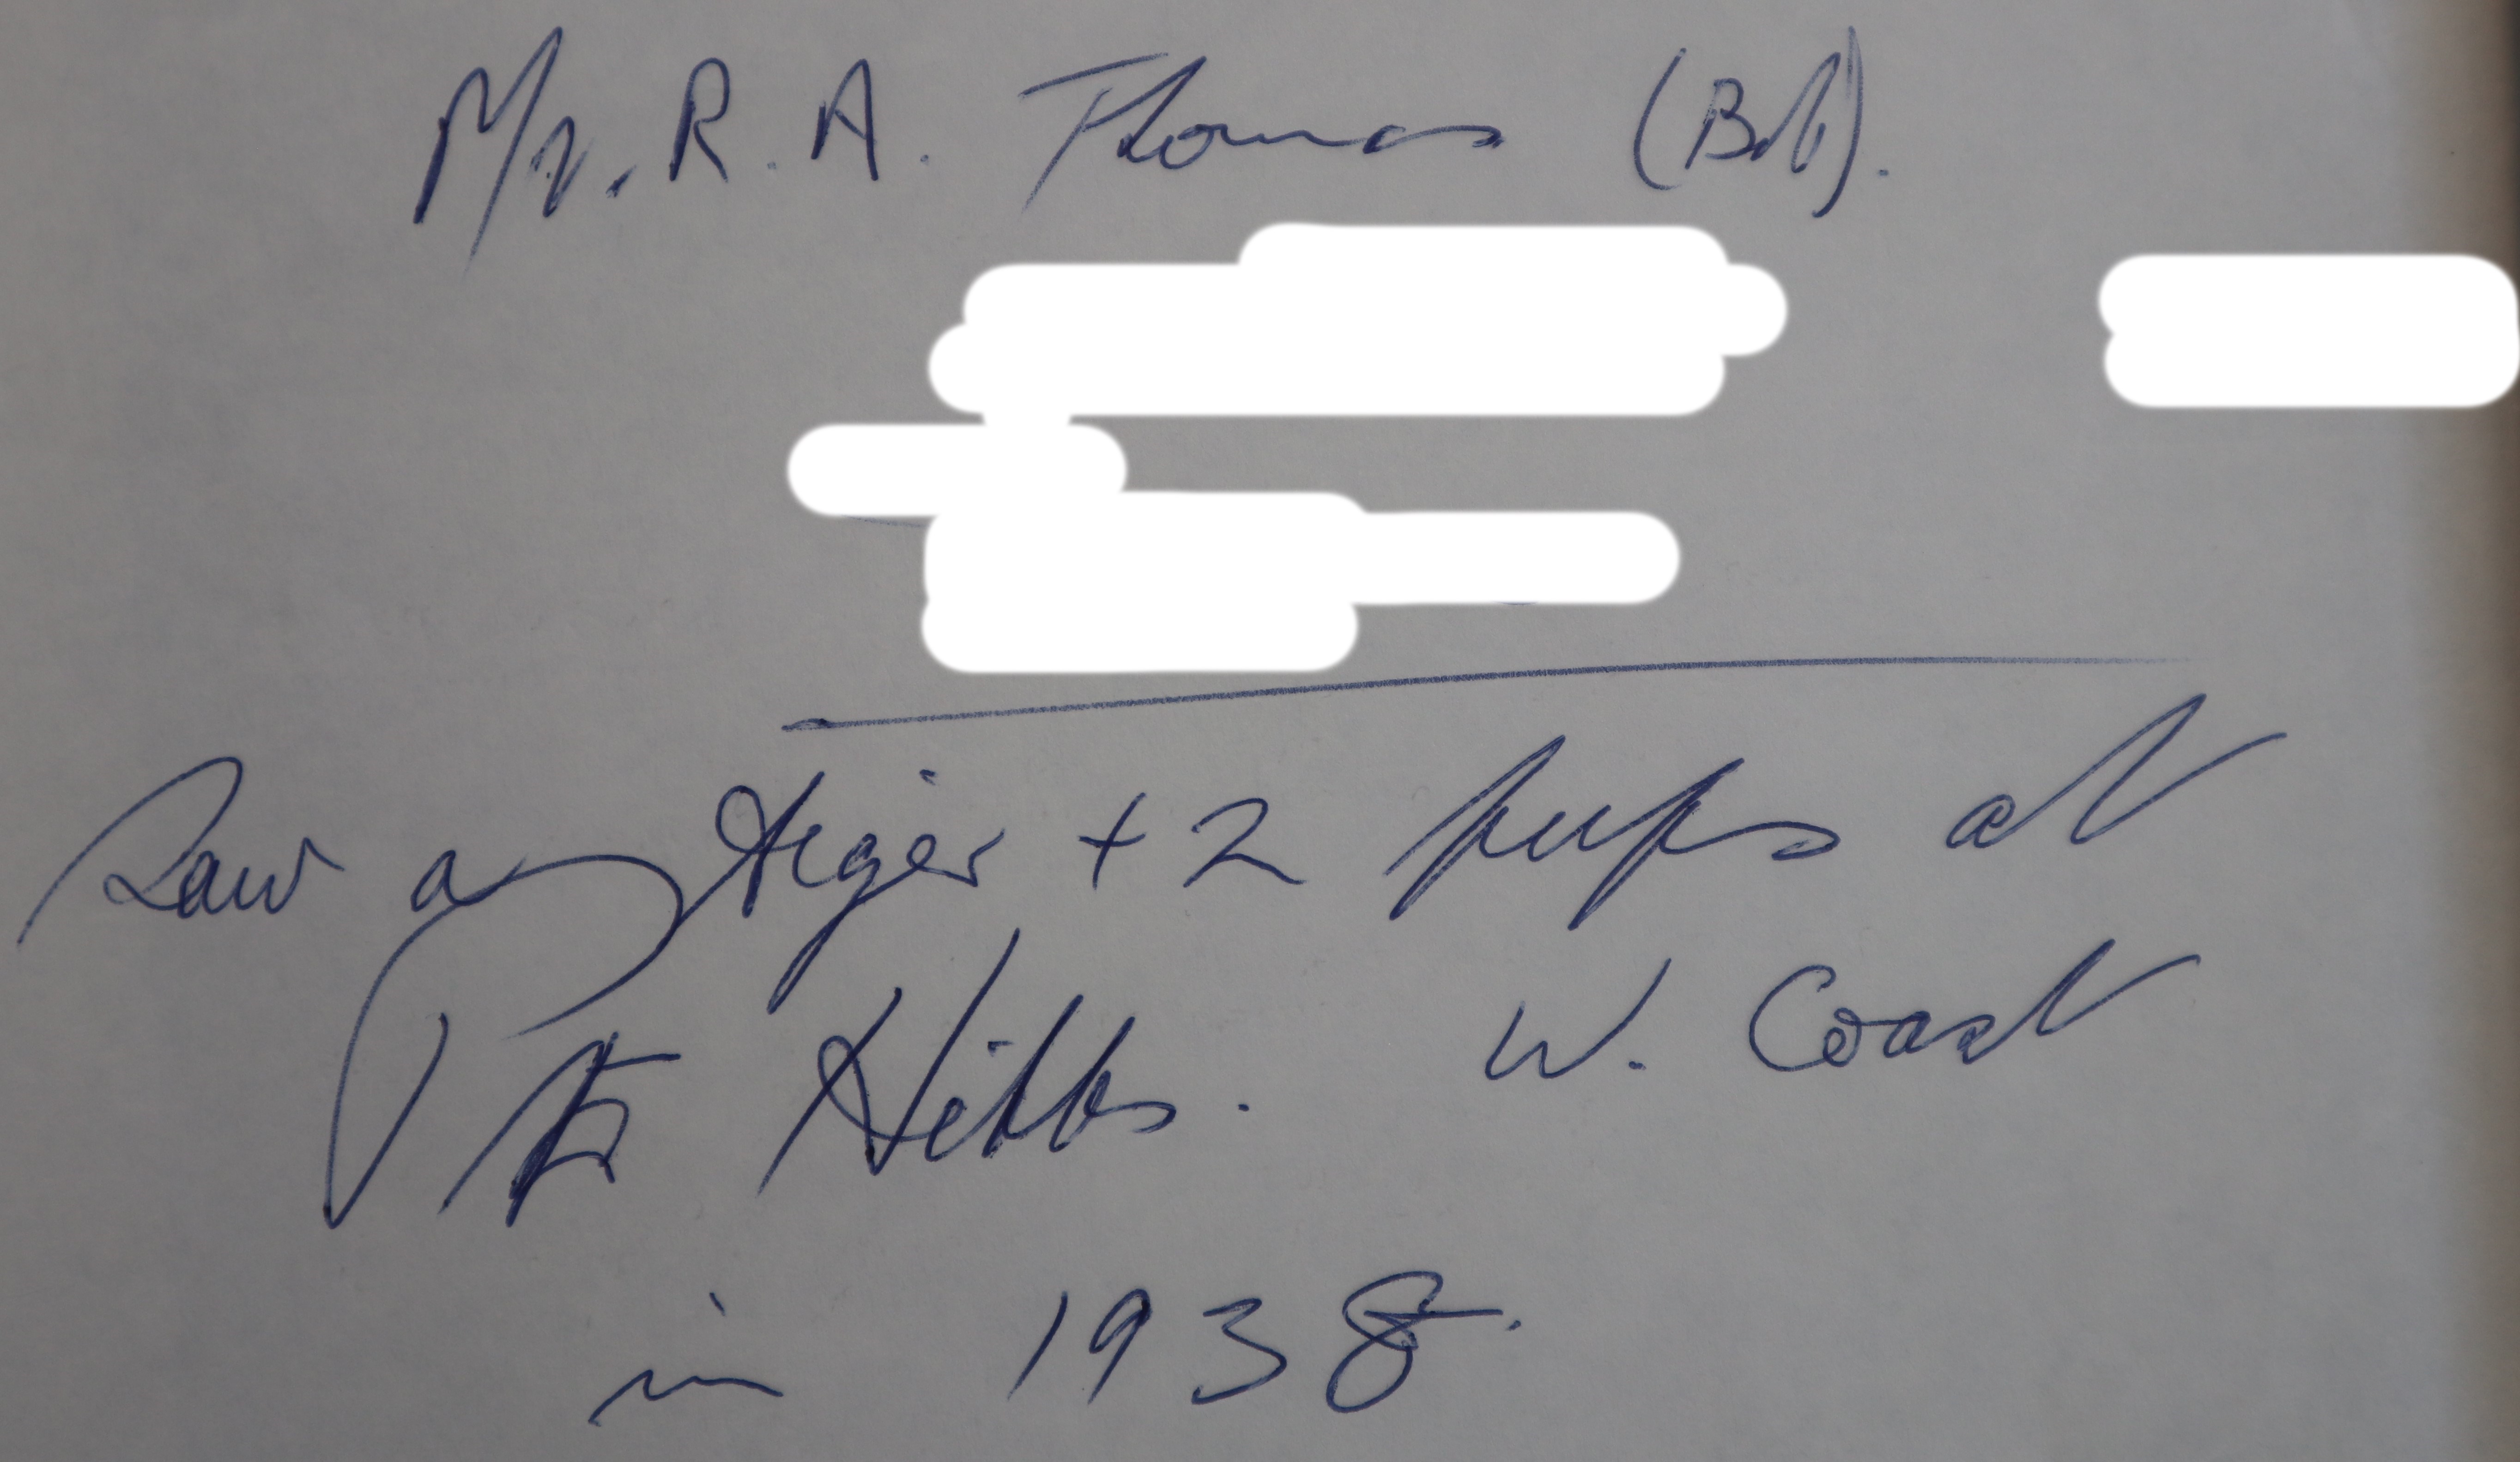 Mr. R. A. Thomas (Bob).
Saw a tiger + 2 pups at
Pt Hibbs. W. Coast
in 1938.